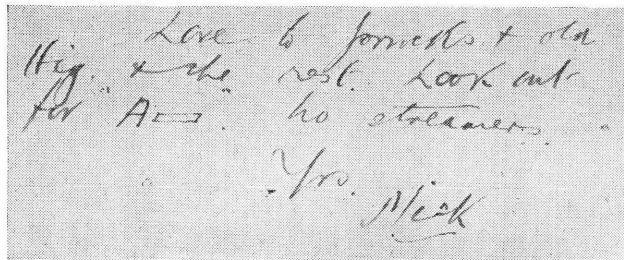 Love to Jorrocks & old
Hig. & the rest. Look out
for "A". No streamers.
Yrs.
Mick